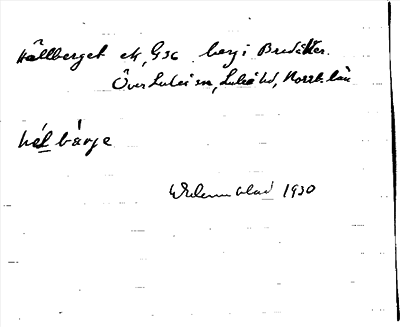 Hällberget ek, G3c berg i Bredåker.
Över Luleå sn, Luleå td, Norrb. län
hél bärje
1930